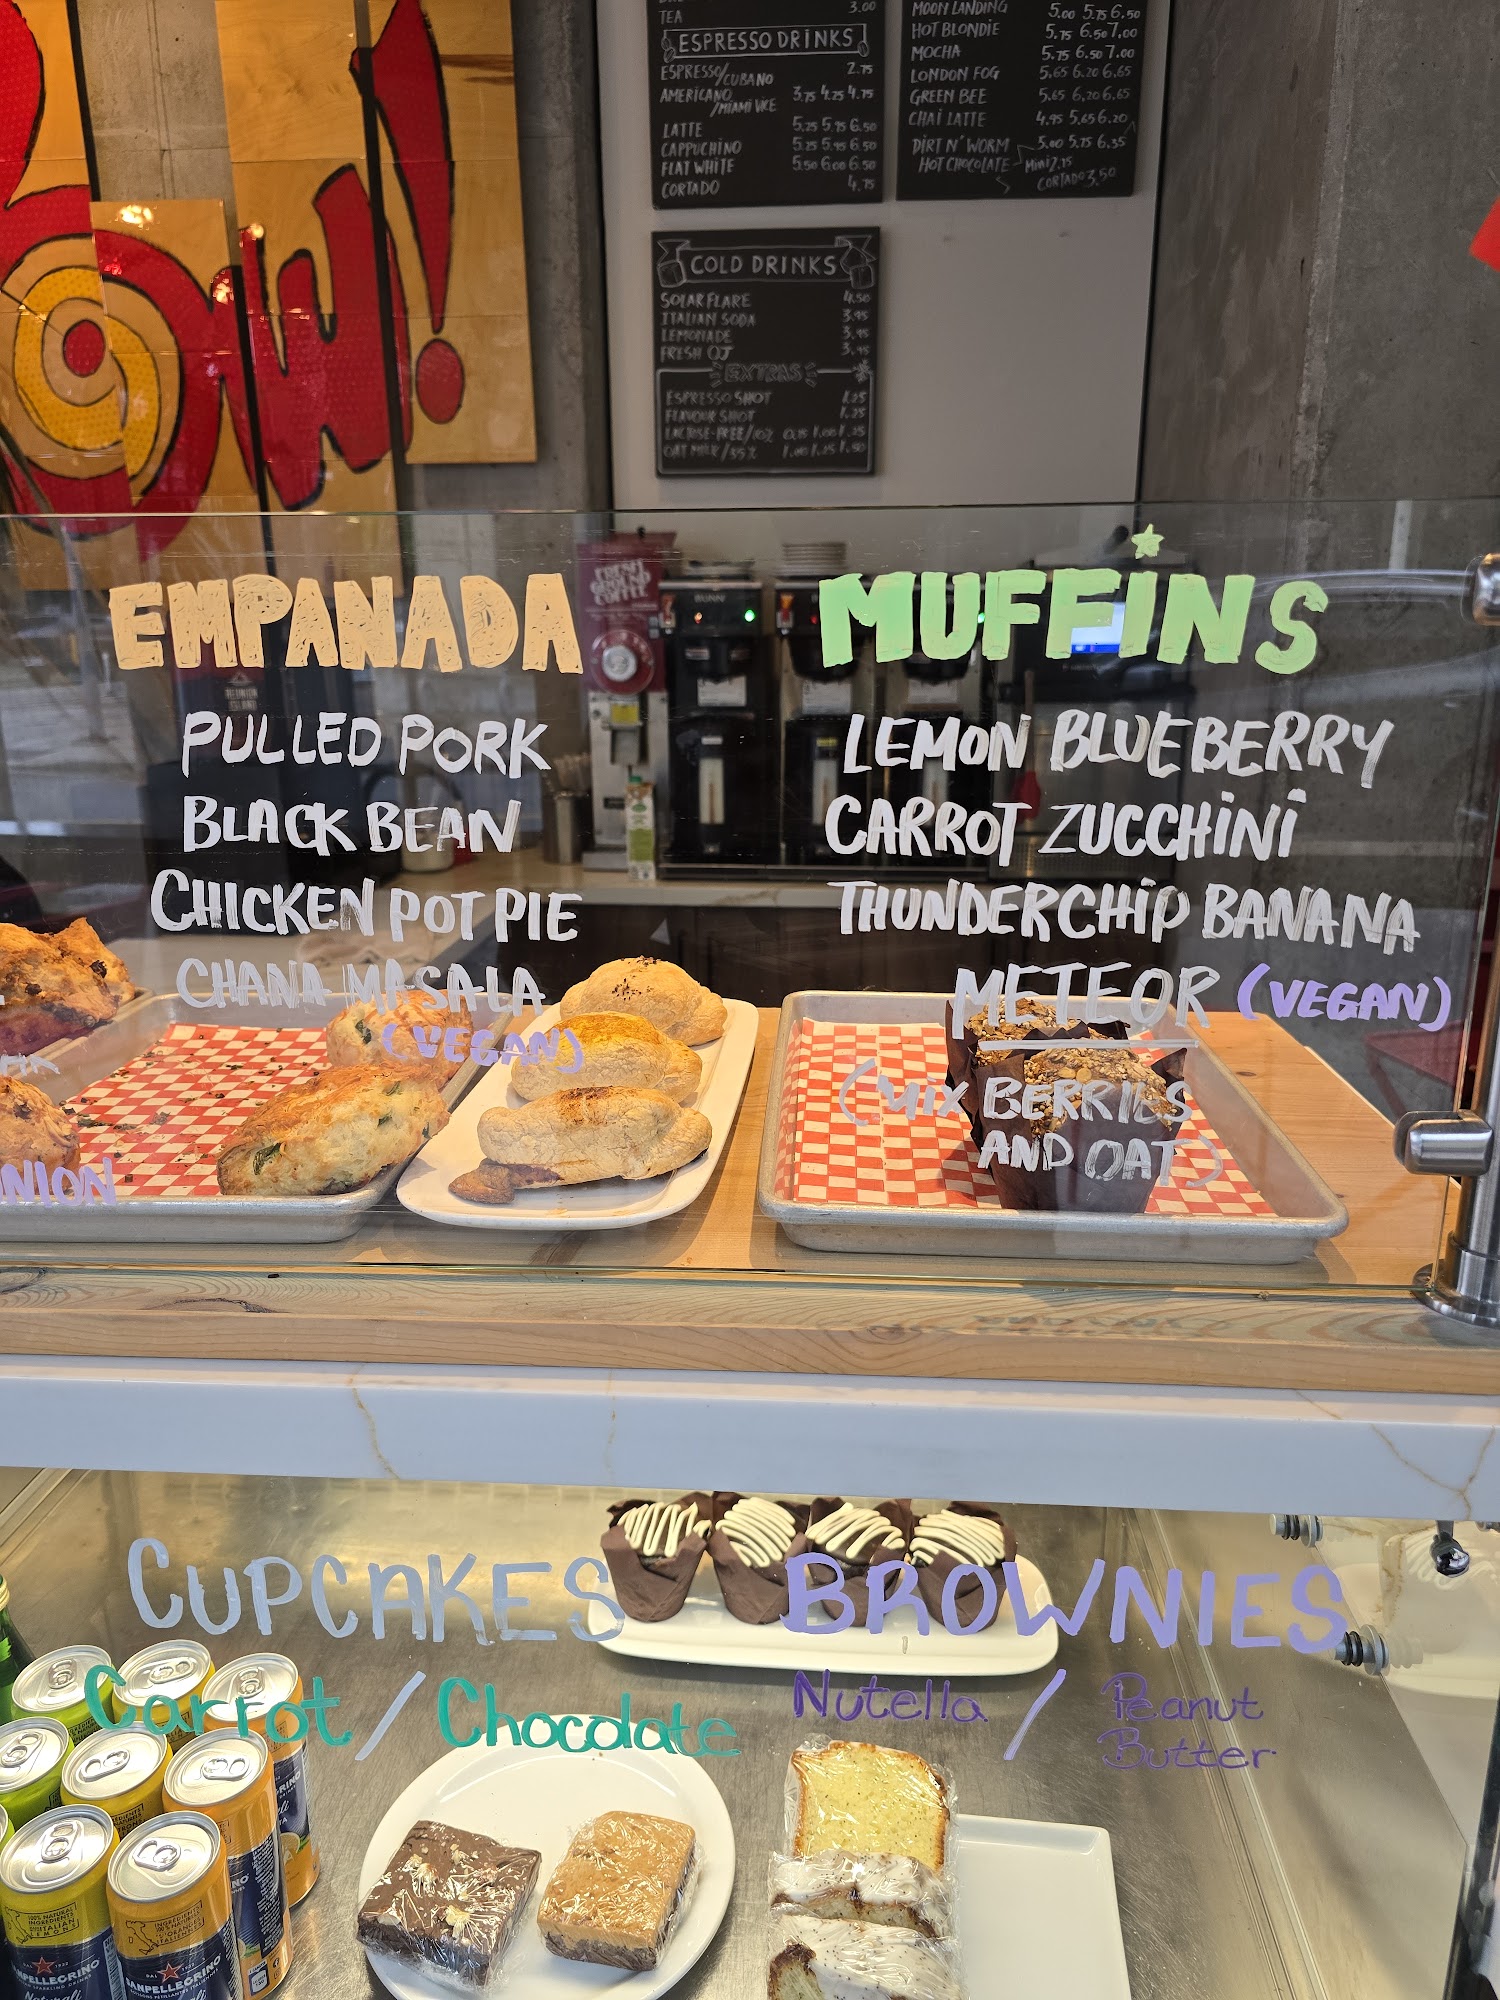 OW!
TEA 3.00
ESPRESSO DRINKS
ESPRESSO/CUBANO 2.75
AMERICANO/MIAMI VICE 3.75 4.25 4.75
LATTE 5.25 5.75 6.50
CAPPUCHINO 5.25 5.95 6.50
FLAT WHITE 5.50 6.00 6.50
CORTADO 4.75
MOON LANDING 5.00 5.75 6.50
HOT BLONDIE 5.75 6.50 7.00
MOCHA 5.75 6.50 7.00
LONDON FOG 5.65 6.20 6.65
GREEN BEE 5.65 6.20 6.65
CHAI LATTE 4.95 5.65 6.20
DIRT N' WORM 5.00 5.75 6.35
HOT CHOCOLATE Mini 2.75
CORTADO 3.50
COLD DRINKS
SOLAR FLARE 4.50
ITALIAN SODA 3.95
LEMONADE 3.95
FRESH OJ 3.95
EXTRAS
ESPRESSO SHOT 1.25
FLAVOUR SHOT 1.25
LACTOSE-FREE/10% 0.75 1.00 1.25
OAT MILK/35% 1.00 1.25 1.50
FRESH
GROUND
COFFEE
BUNN
REUNION
ISLAND
EMPANADA
PULLED PORK
BLACK BEAN
CHICKEN POT PIE
CHANA MASALA
(VEGAN)
MUFFINS
LEMON BLUEBERRY
CARROT ZUCCHINI
THUNDERCHIP BANANA
METEOR (VEGAN)
(MIX BERRIES
AND OAT)
NION
CUPCAKES
Carrot / Chocolate
BROWNIES
Nutella / Peanut
Butter
SANPELLEGRINO
Naturali